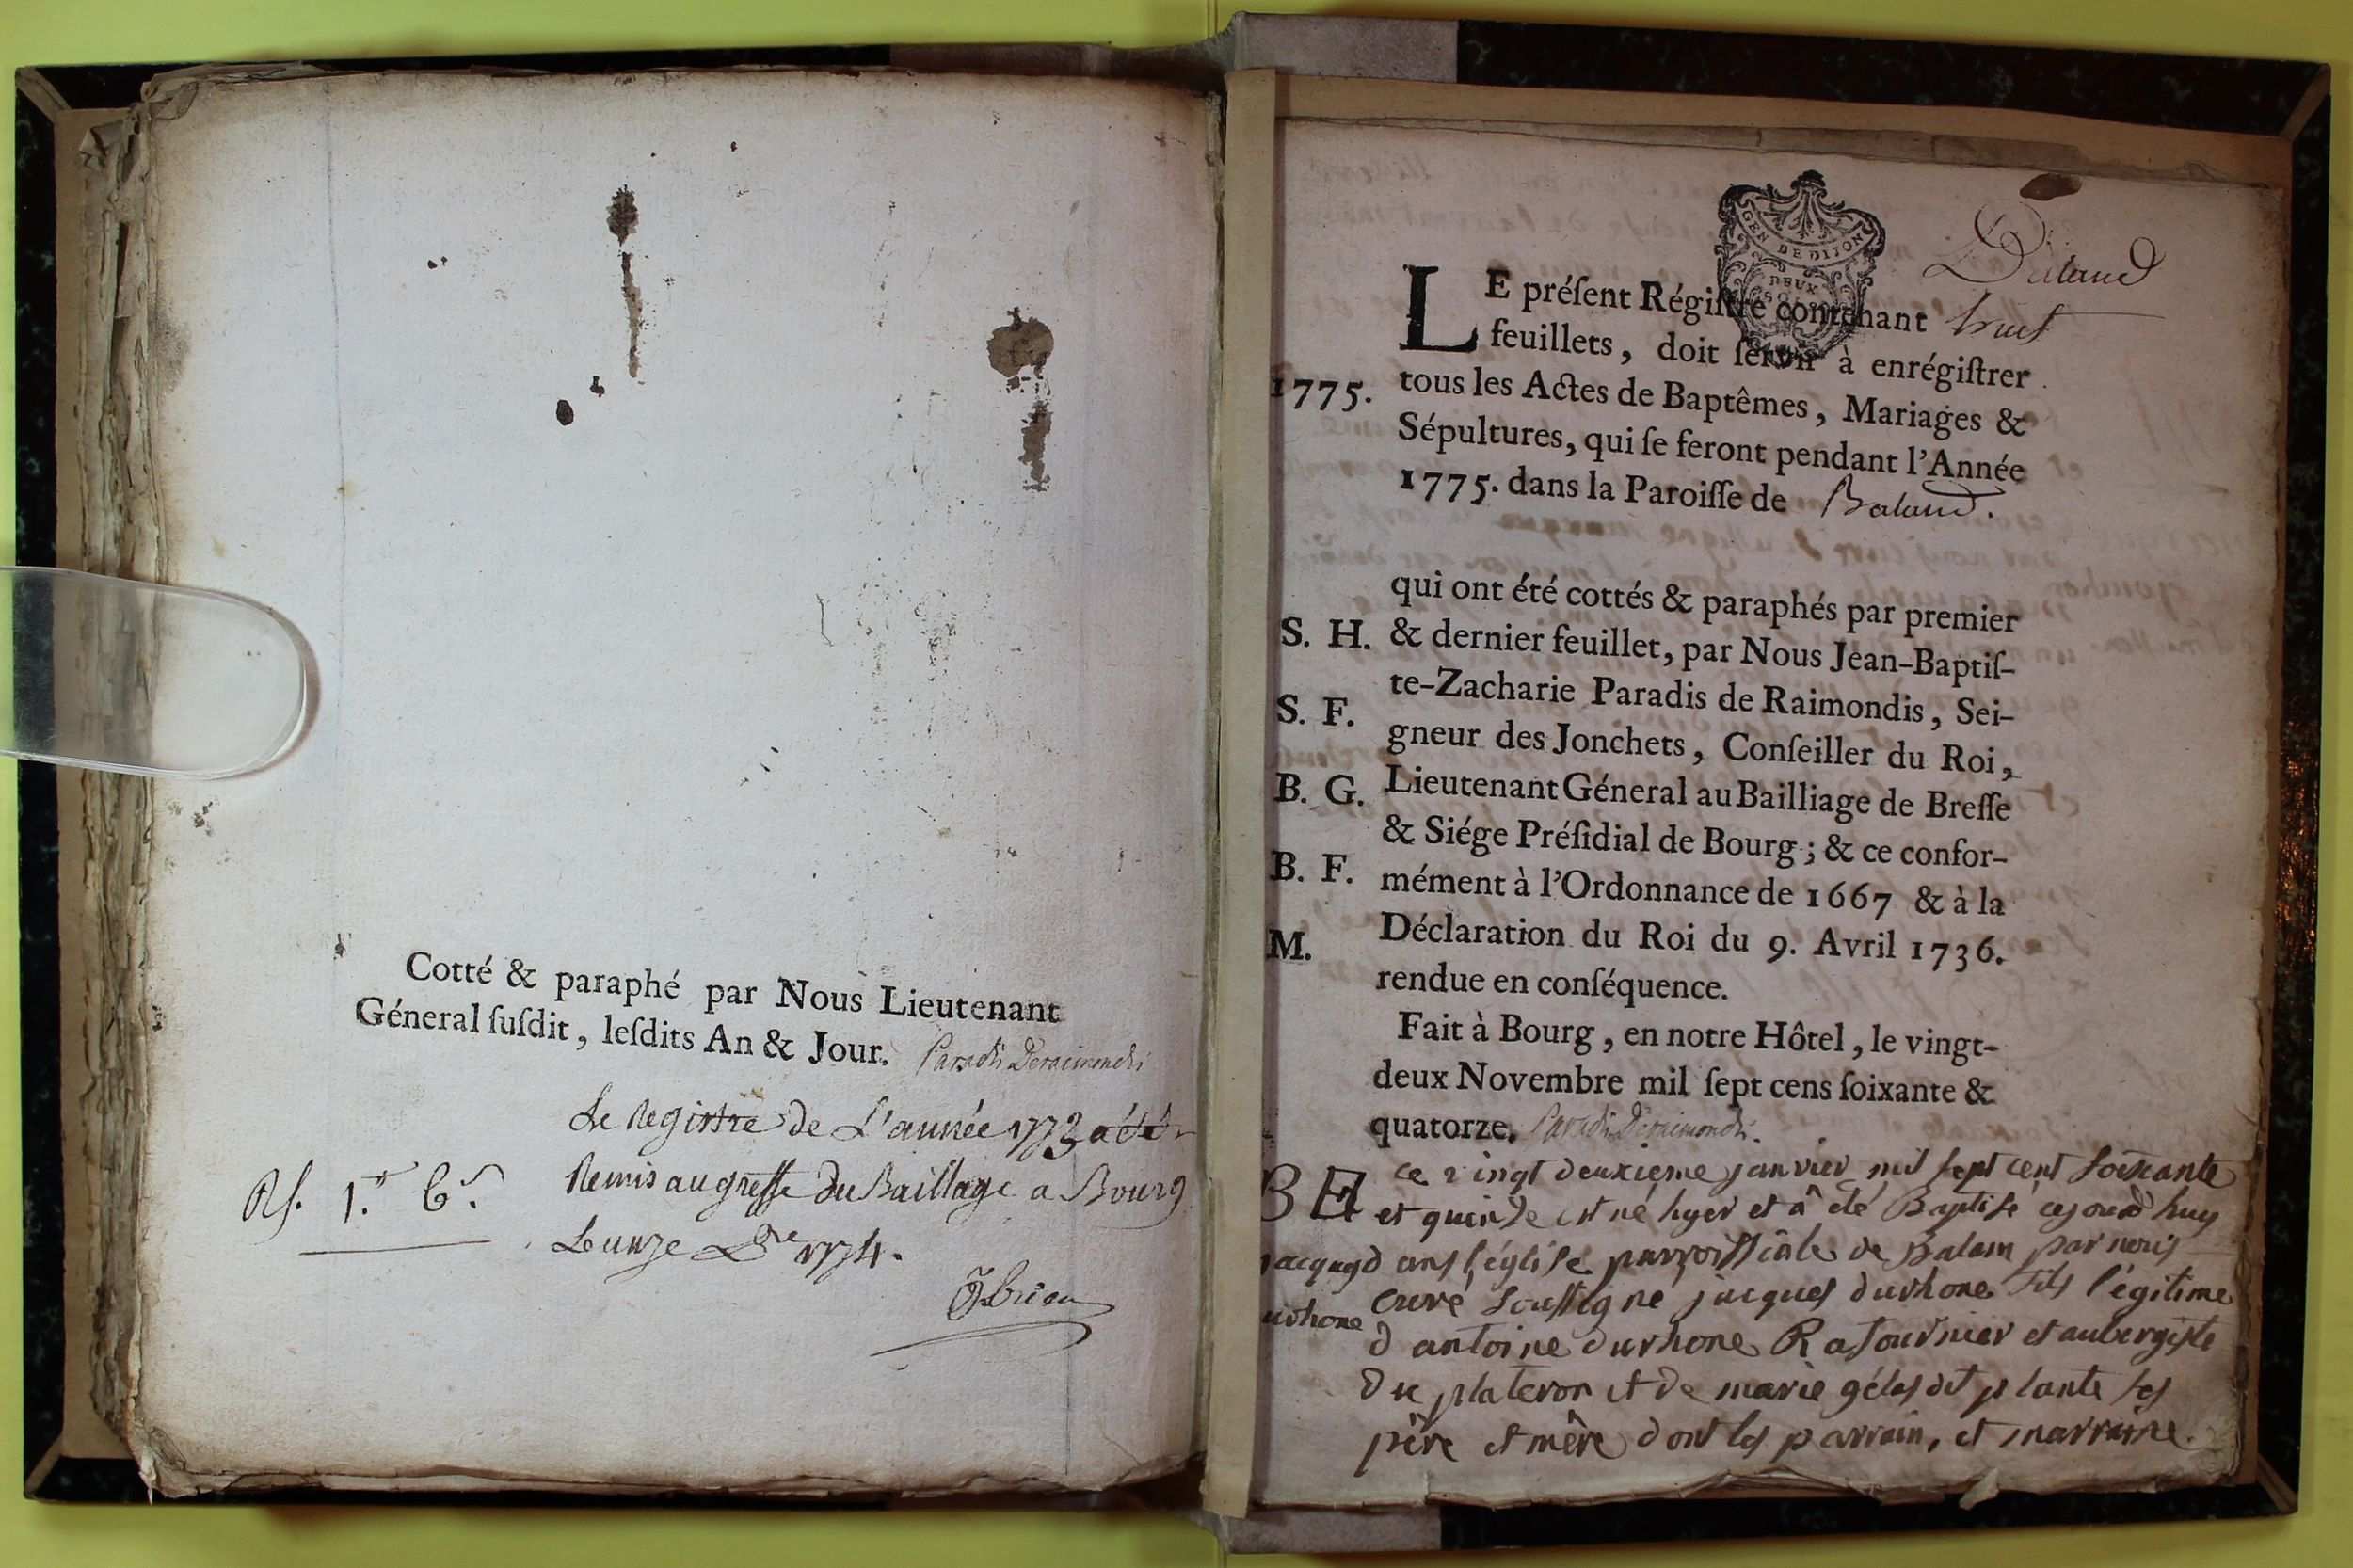 Cotté & paraphé par Nous Lieutenant
Géneral ſuſdit, leſdits An & Jour. Paradis Deraimondis
Le Registre de L'année 1773 a été
Remis au greffe du Baillage a Bourg
Le unze 1774.
GEN DE DIJON
DEUX
Baland
LE préſent Régiſtre contenant huit
feuillets, doit ſervir à enrégiſtrer
1775. tous les Actes de Baptêmes, Mariages &
Sépultures, qui ſe feront pendant l'Année
1775. dans la Paroiſſe de Baland.
qui ont été cottés & paraphés par premier
S. H. & dernier feuillet, par Nous Jean-Baptiſ-
te-Zacharie Paradis de Raimondis, Sei-
S. F. gneur des Jonchets, Conſeiller du Roi,
B. G. Lieutenant Géneral au Bailliage de Breſſe
& Siége Préſidial de Bourg; & ce confor-
B. F. mément à l'Ordonnance de 1667 & à la
M. Déclaration du Roi du 9. Avril 1736.
rendue en conſéquence.
Fait à Bourg, en notre Hôtel, le vingt-
deux Novembre mil ſept cens ſoixante &
quatorze. Paradis Deraimondis.
ce vingt deuxieme janvier mil sept cent soixante
et quinze est né hyer et â eté Baptisé cejourdhuy
dans l'église parroissiâle de Balam par nous
Curé soussigné jacques durhone fils légitime
d antoine durhone et aubergiste
du plateron et de marie gélas dit plante ses
pêre et mêre dont les parrain, et marraine